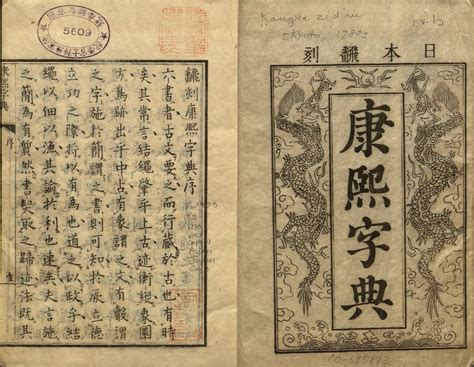 日本飜刻
康熙字典
5609
飜刻康熙字典序
六書者古文要之而行藏於古也有時
矣其常言結繩肇乎上古迹衡縱象圖
方鳥跡出乎中古有像謂之文有
之字施於簡謂之書則可知於厥立德
立功之際將以有為也道之以政乎結
繩以佃以漁其諭於利也速矣史言施
之簡為有然書契取之迹法既其
序